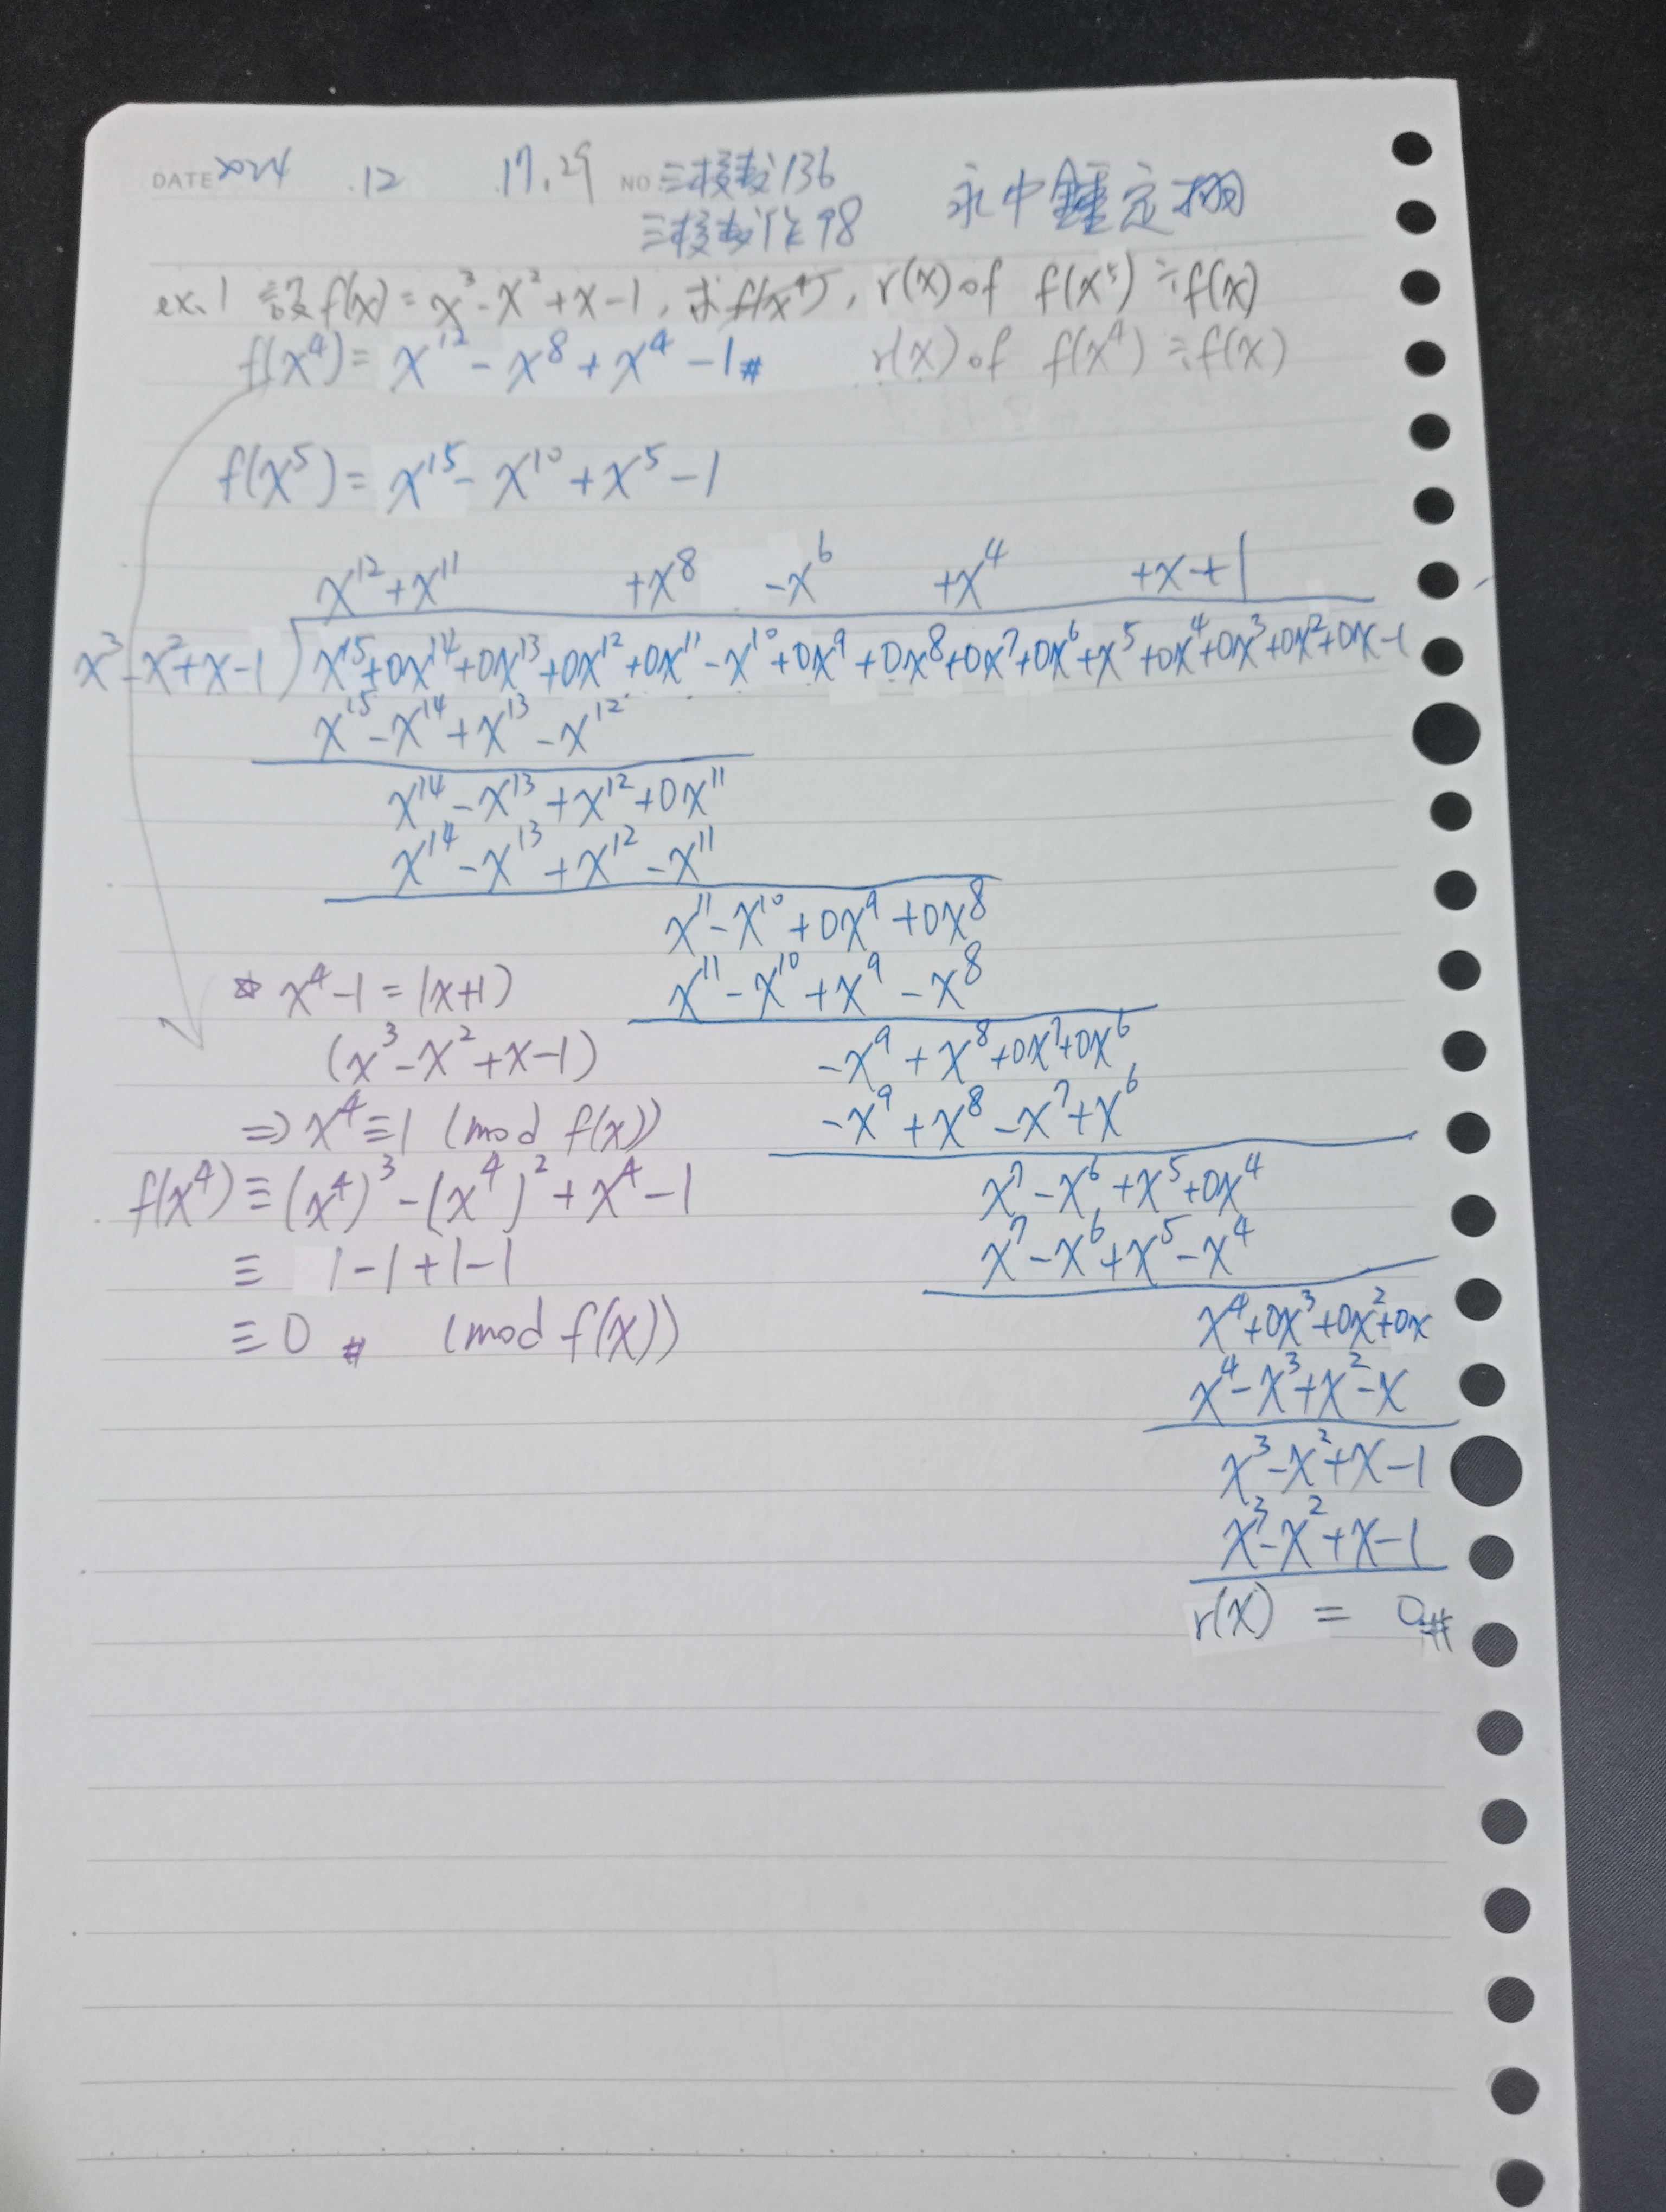 DATE 2024 .12 .17.29 NO. 三核教136 永中鍾定栩
三核教修98
ex.1 設f(x)=x³-x²+x-1, 求f(x⁴), r(x) of f(x⁵)÷f(x)
f(x⁴)=x¹²-x⁸+x⁴-1# r(x) of f(x⁴)÷f(x)
f(x⁵)=x¹⁵-x¹⁰+x⁵-1
x¹²+x¹¹ +x⁸ -x⁶ +x⁴ +x+1
x³-x²+x-1 ) x¹⁵+0x¹⁴+0x¹³+0x¹²+0x¹¹-x¹⁰+0x⁹+0x⁸+0x⁷+0x⁶+x⁵+0x⁴+0x³+0x²+0x-1
x¹⁵-x¹⁴+x¹³-x¹²
x¹⁴-x¹³+x¹²+0x¹¹
x¹⁴-x¹³+x¹²-x¹¹
x¹¹-x¹⁰+0x⁹+0x⁸
x¹¹-x¹⁰+x⁹-x⁸
-x⁹+x⁸+0x⁷+0x⁶
-x⁹+x⁸-x⁷+x⁶
x⁷-x⁶+x⁵+0x⁴
x⁷-x⁶+x⁵-x⁴
x⁴+0x³+0x²+0x
x⁴-x³+x²-x
x³-x²+x-1
x³-x²+x-1
r(x) = 0#
☆ x⁴-1=(x+1)
(x³-x²+x-1)
⇒x⁴≡1 (mod f(x))
f(x⁴)≡(x⁴)³-(x⁴)²+x⁴-1
≡ 1-1+1-1
≡0 # (mod f(x))